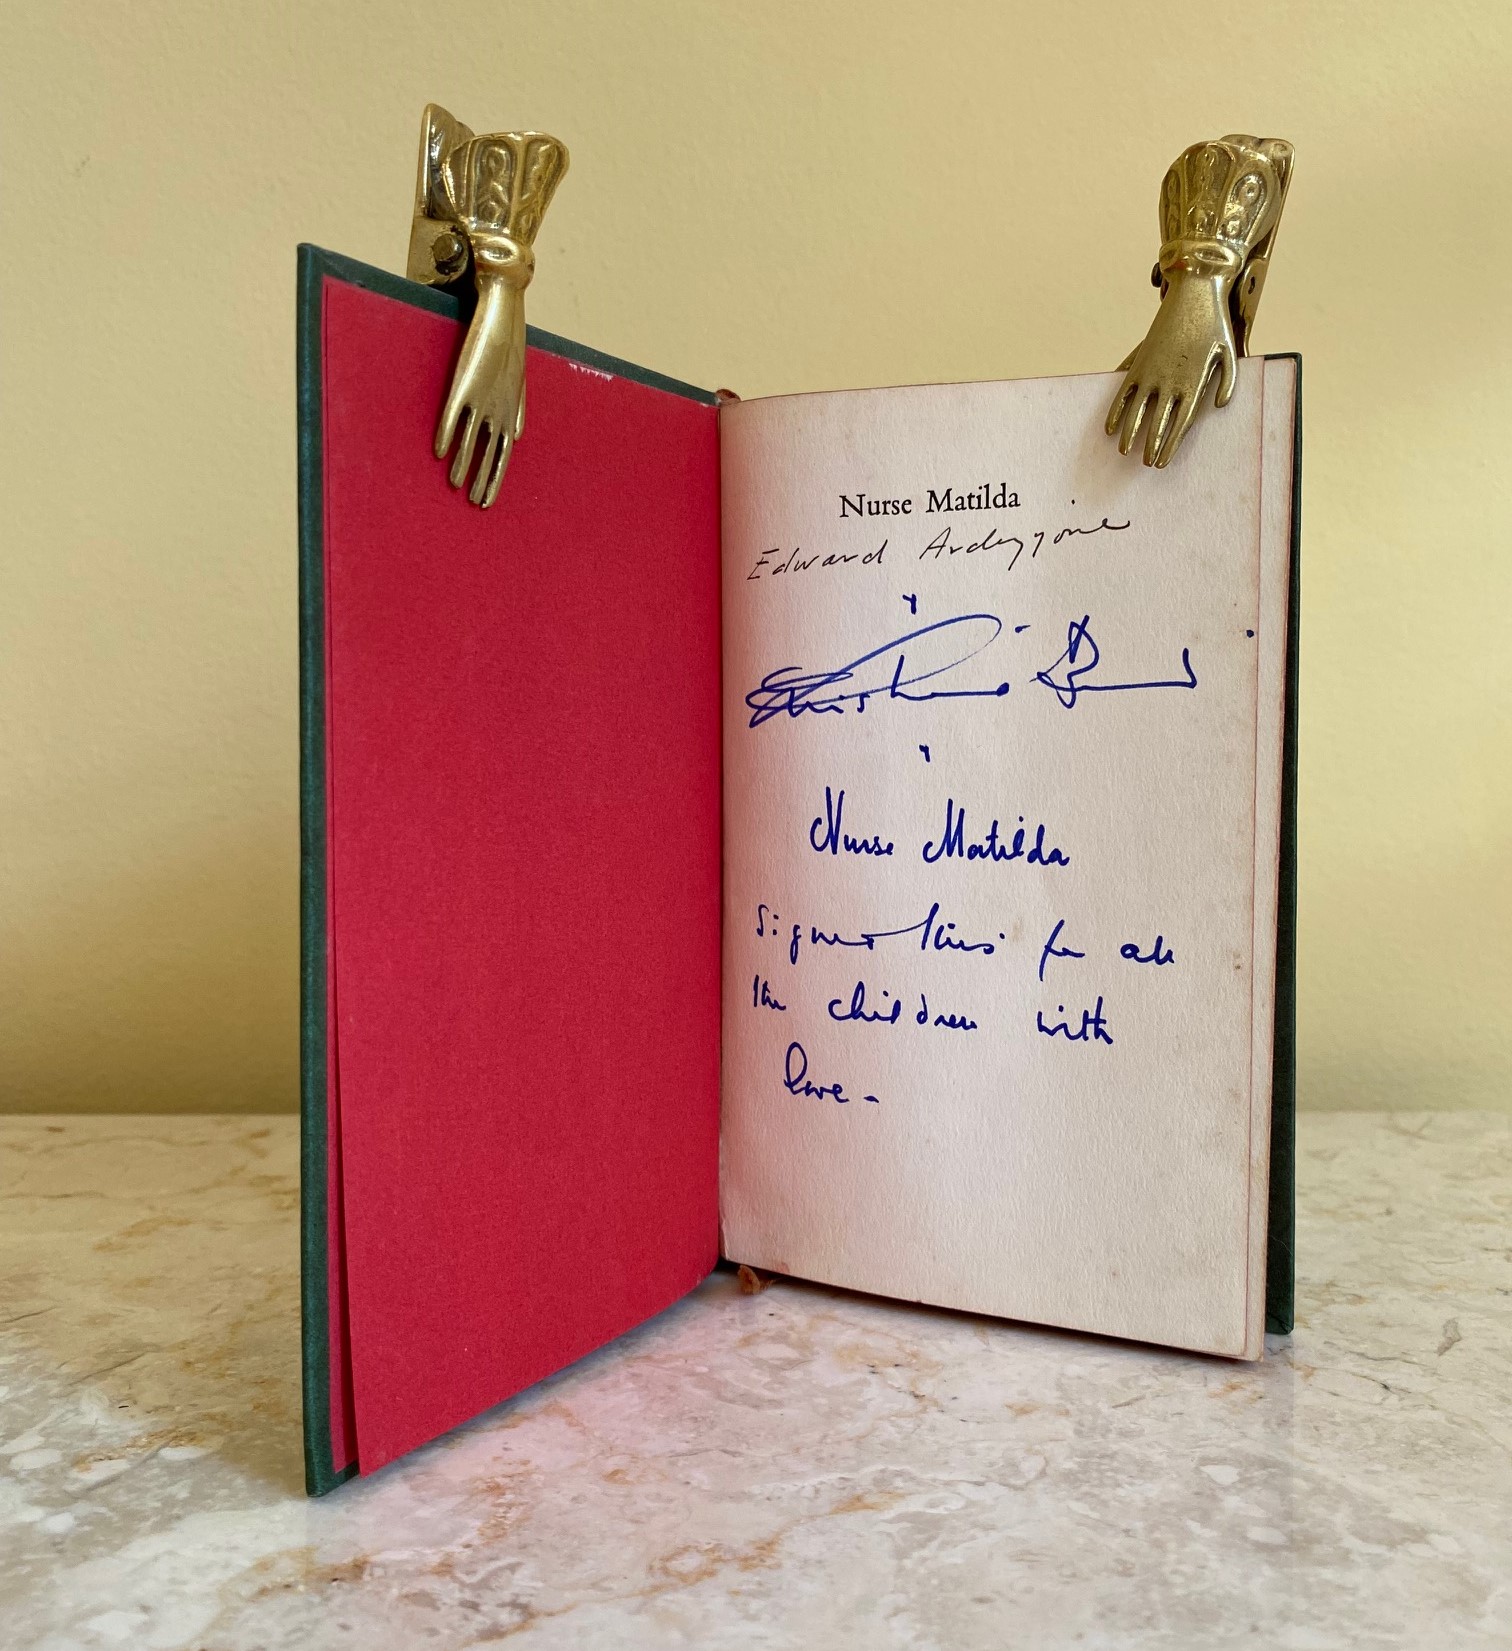 Nurse Matilda
Edward Ardizzone
Christianna Brand
Nurse Matilda
Signed this for all
the children with
love -